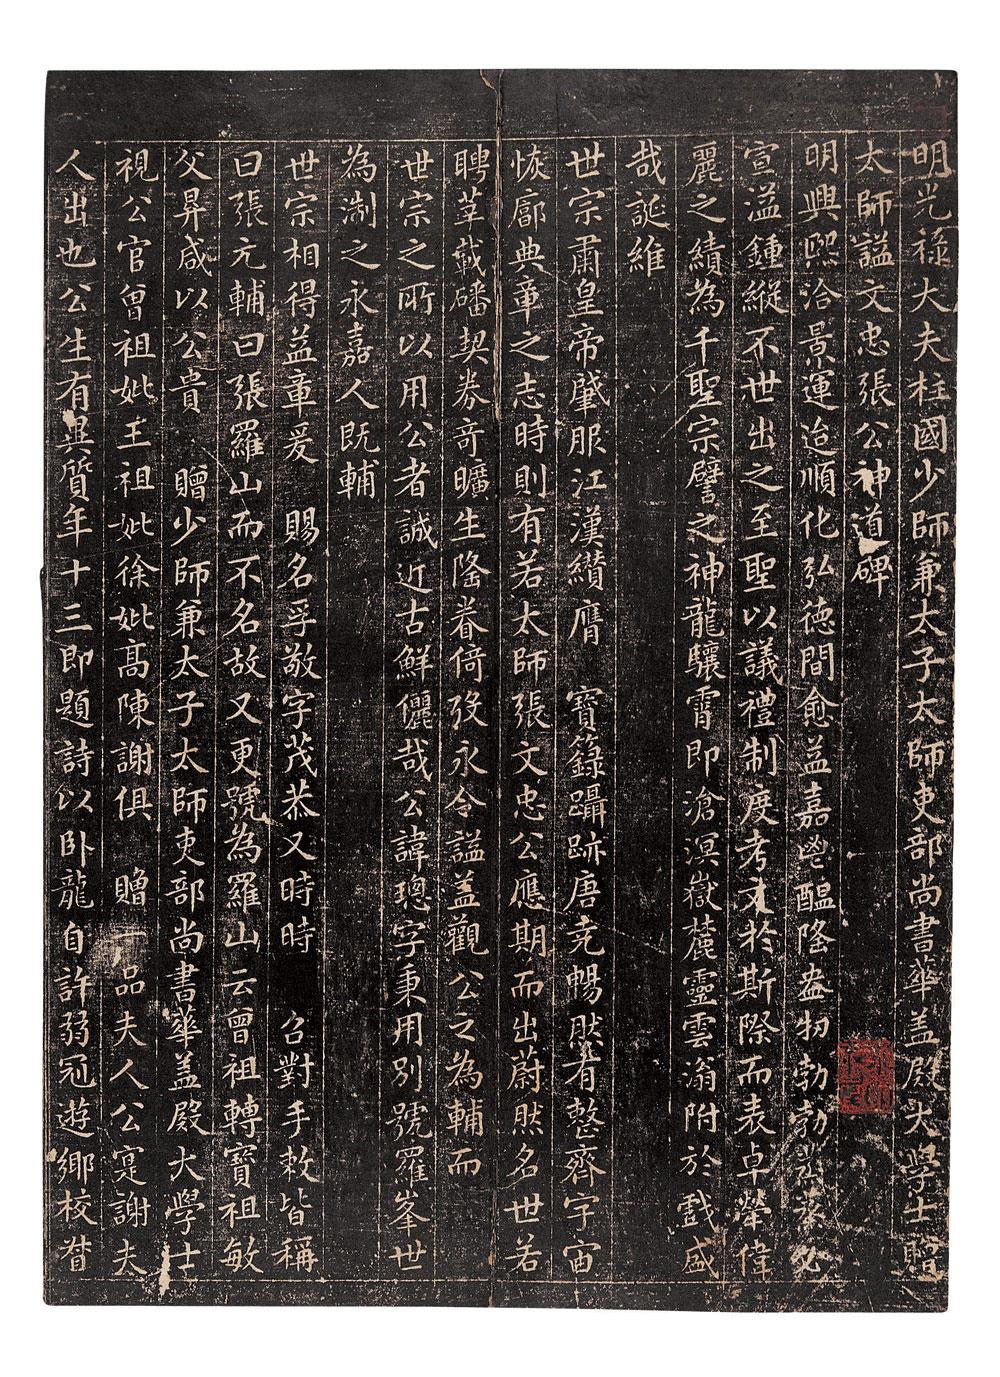 明光祿大夫柱國少師兼太子太師吏部尚書華盖殿大學士贈
太師謚文忠張公神道碑
明興熙洽景運迨順化弘德間愈益嘉鬯醖隆盎物勃勃
宣溢鍾縱不世出之至聖以議禮制度考文於斯際而表卓犖偉
麗之績為千聖宗譬之神龍驤霄即滄溟嶽麓靈雲滃附於戲盛
哉誕維
世宗肅皇帝肇服江漢纘膺 寶籙躡跡唐堯暢然有整齊宇宙
恢廓典章之志時則有若太師張文忠公應期而出蔚然名世若
聘莘載磻契券奇曠生隆眷倚歿永令謚盖觀公之為輔而
世宗之所以用公者誠近古鮮儷哉公諱璁字秉用別號羅峯世
為淛之永嘉人既輔
世宗相得益章爰 賜名孚敬字茂恭又時時 召對手敕皆稱
曰張元輔曰張羅山而不名故又更號為羅山云曾祖轉寶祖敏
父昇咸以公貴 贈少師兼太子太師吏部尚書華盖殿大學士
視公官曾祖妣王祖妣徐妣高陳謝俱 贈一品夫人公寔謝夫
人出也公生有異質年十三即題詩以卧龍自許弱冠遊鄉校督